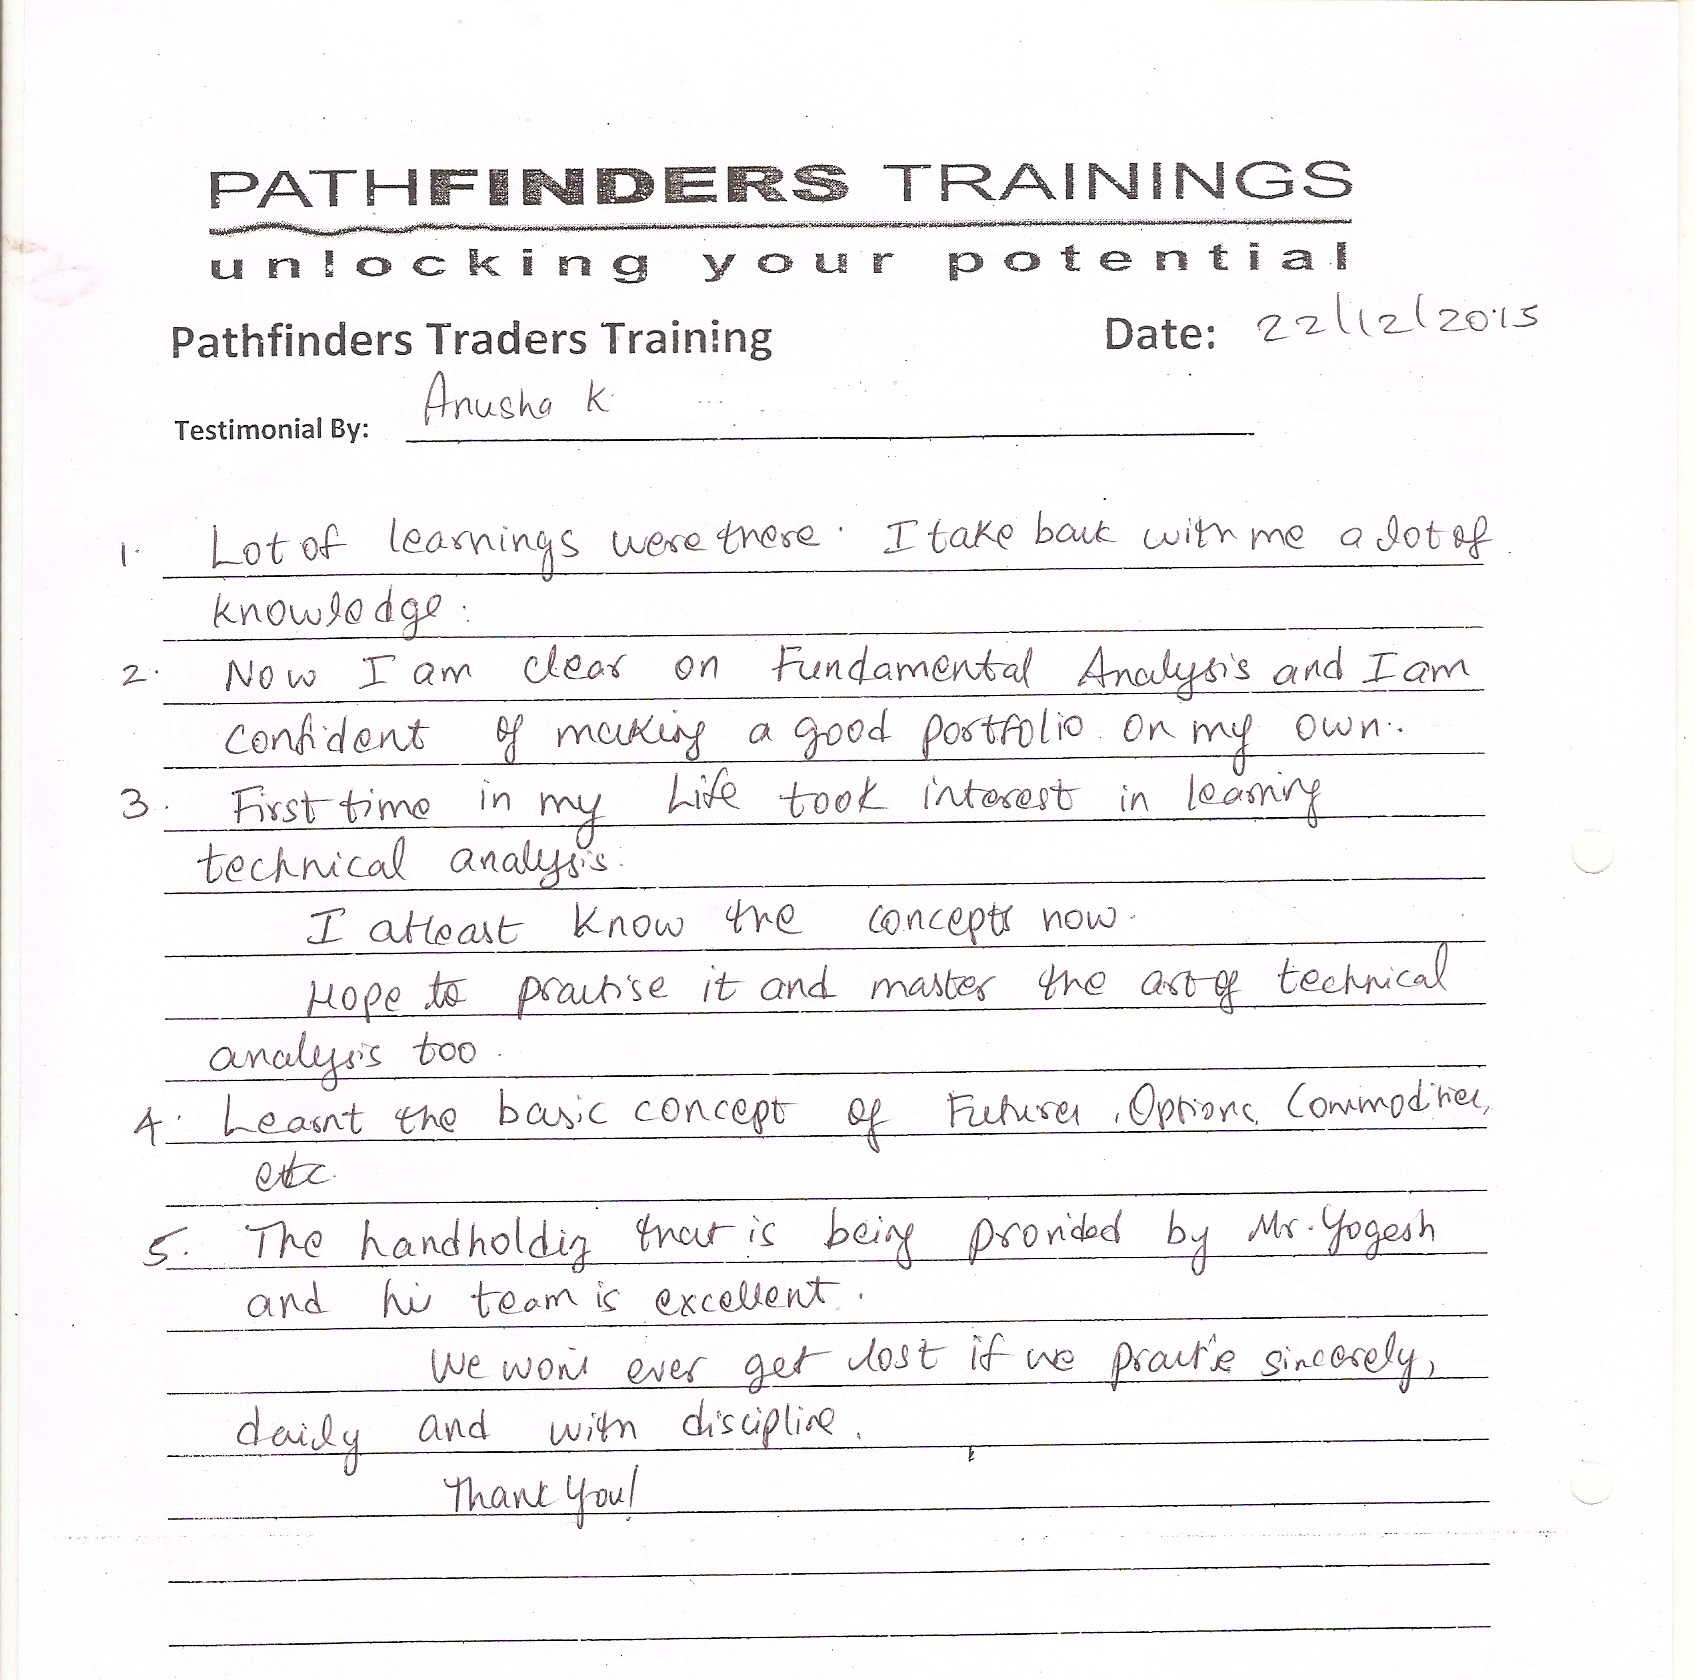 PATHFINDERS TRAININGS
unlocking your potential
Pathfinders Traders Training Date: 22/12/2015
Testimonial By: Anusha K
1. Lot of learnings were there. I take back with me a lot of
knowledge.
2. Now I am clear on Fundamental Analysis and I am
confident of making a good portfolio on my own.
3. First time in my Life took interest in learning
technical analysis.
I atleast know the concepts now.
Hope to practise it and master the art of technical
analysis too.
4. Learnt the basic concept of Futures, Options, Commodities,
etc.
5. The handholding that is being provided by Mr. Yogesh
and his team is excellent.
We won't ever get lost if we practise sincerely,
daily and with discipline.
Thank You!